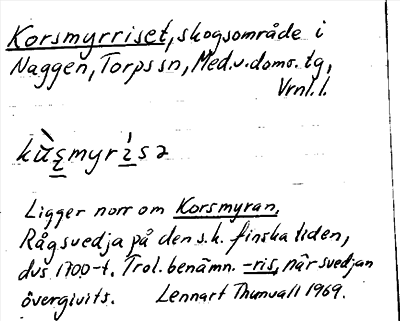 Korsmyrriset, skogsområde i
Naggen, Torps sn, Med.v.doms. tg,
Vrnl. l.
myr
Ligger norr om Korsmyran.
Rågsvedja på den s.k. finska tiden,
dvs 1700-t. Trol. benämn. -ris, när svedjan
övergivits. Lennart Thunvall 1969.